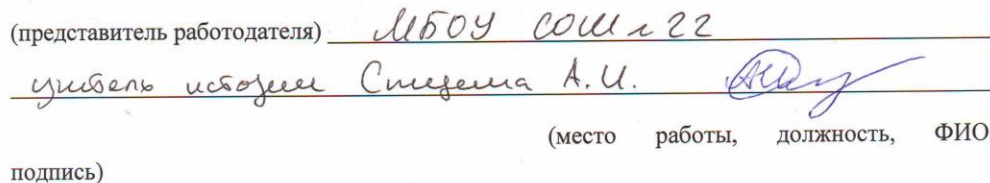 (представитель работодателя) МБОУ СОШ № 22
учитель истории А.И.
(место работы, должность, ФИО
подпись)